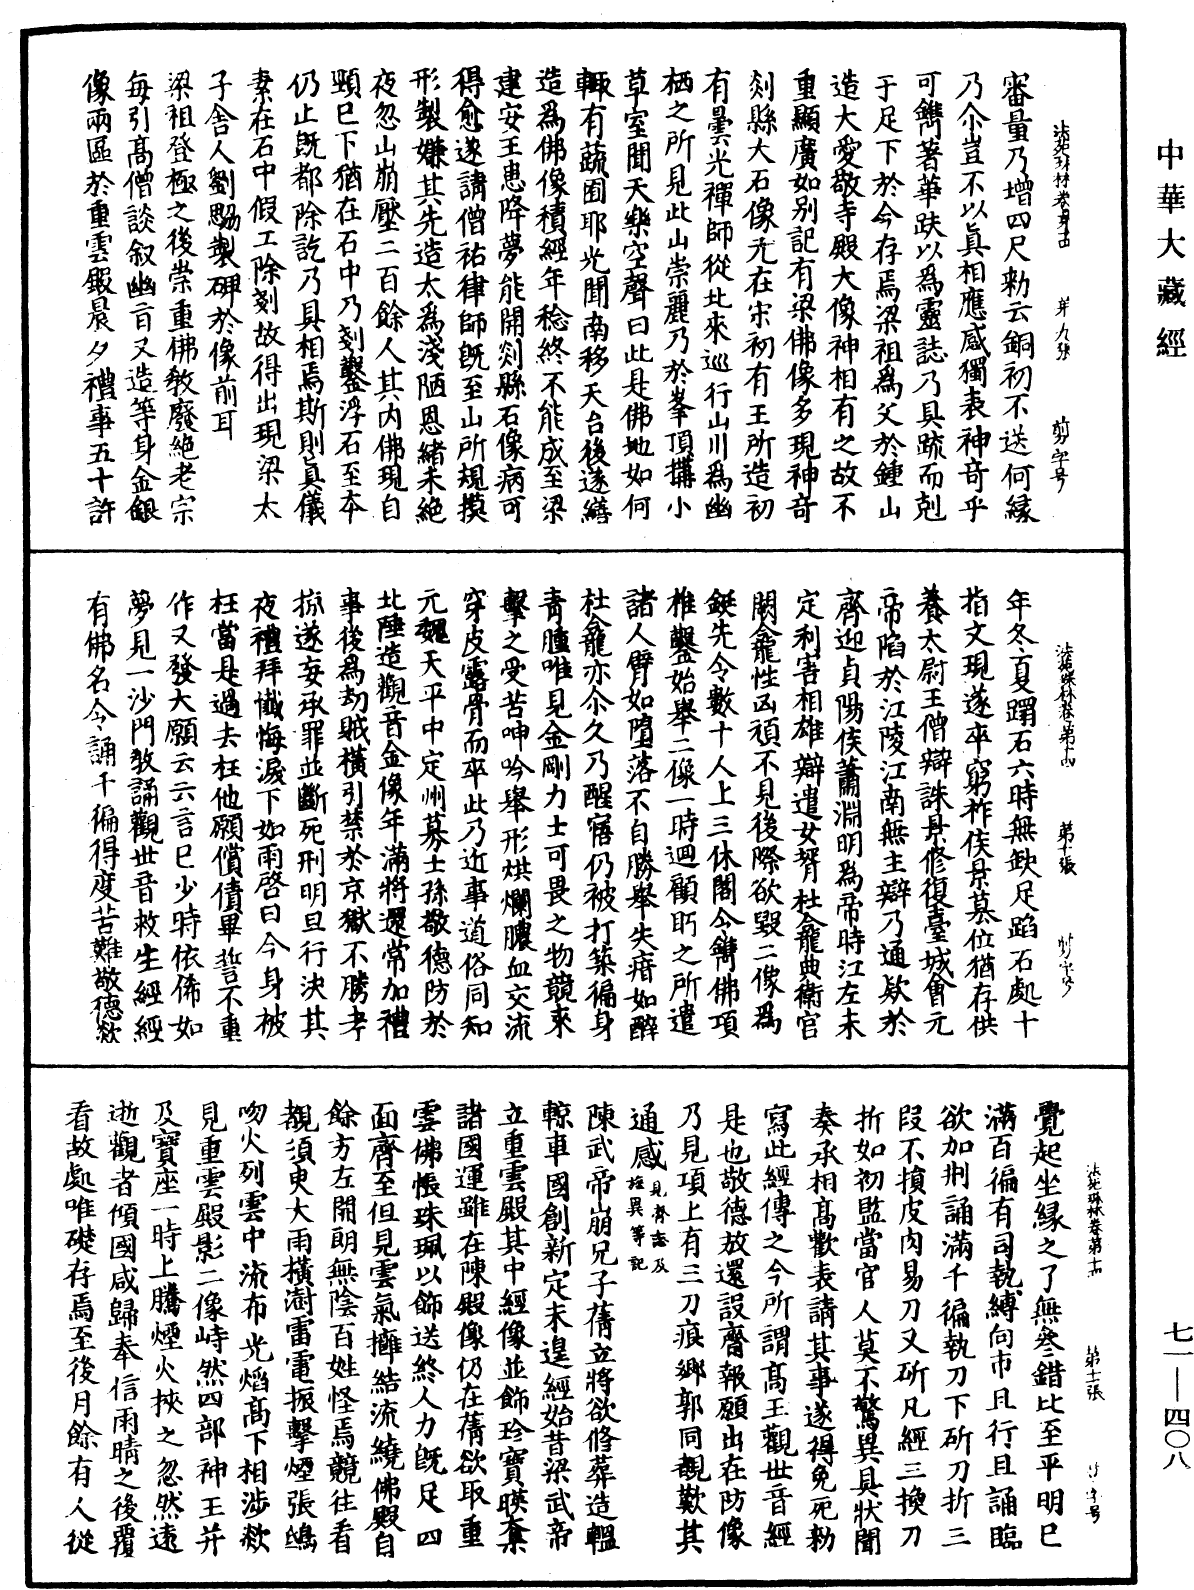 中華大藏經
法苑珠林卷第十四 第九張 𠠎字号
審量乃增四尺勑云銅初不送何縁
乃尒豈不以眞相應感獨表神奇乎
可鐫著華趺以爲靈誌乃具疏而剋
于足下於今存焉梁祖爲父於鍾山
造大愛敬寺殿大像神相有之故不
重顯廣如别記有梁佛像多現神奇
剡縣大石像元在宋初有王所造初
有曇光禪師從北來巡行山川爲幽
栖之所見此山崇麗乃於峯頂搆小
草室聞天樂空聲曰此是佛地如何
輙有蔬圃耶光聞南移天台後遂繕
造爲佛像積經年稔終不能成至梁
建安王患降夢能開剡縣石像病可
得愈遂請僧祐律師旣至山所規摸
形製嫌其先造太爲淺陋思緒未絶
夜忽山崩壓二百餘人其内佛現自
頸已下猶在石中乃剗鑿浮石至夲
仍止旣都除訖乃具相焉斯則眞儀
素在石中假工除剗故得出現梁太
子舍人劉勰製碑於像前耳
梁祖登極之後崇重佛教廢絶老宗
毎引髙僧談叙幽㫖又造等身金銀
像兩區於重雲殿晨夕禮事五十許
法苑珠林卷第十四 第十張
年冬夏蹋石六時無缺足蹈石處十
指文現遂卒窮祚侯景篡位猶存供
養太尉王僧辯誅景修復臺城會元
帝陷於江陵江南無主辯乃通欵於
齊迎貞陽侯蕭淵明爲帝時江左未
定利害相雄辯遣女壻杜龕典衛宫
闕龕性凶頑不見後際欲毀二像爲
鋌先令數十人上三休閣令鐫佛項
椎鑿始舉二像一時迴顧眄之所遣
諸人臂如墮落不自勝舉失瘖如醉
杜龕亦尒久乃醒寤仍被打築徧身
青腫唯見金剛力士可畏之物競來
擊之受苦呻吟舉形烘爛膿血交流
穿皮露骨而卒此乃近事道俗同知
元魏天平中定州募士孫敬德防於
北陲造觀音金像年滿將還常加禮
事後爲劫賊横引禁於京獄不勝考
掠遂妄承罪並斷死刑明旦行決其
夜禮拜懺悔淚下如雨啓曰今身被
枉當是過去枉他願償債畢誓不重
作又發大願云云言已少時依俙如
夢見一沙門敎誦觀世音救生經經
有佛名令誦千徧得度苦難敬德欻
法苑珠林卷第十四 第十一張
覺起坐縁之了無叅錯比至平明已
滿百徧有司執縛向市且行且誦臨
欲加刑誦滿千徧執刀下斫刀折三
叚不損皮肉易刀又斫凡經三換刀
折如初監當官人莫不驚異具狀聞
奏承相髙歡表請其事遂得免死勑
寫此經傳之今所謂髙王觀世音經
是也敬德放還設齋報願出在防像
乃見項上有三刀痕鄉郭同覩歎其
通感見齊志及旌異等記
陳武帝崩兄子蒨立將欲修葬造轀
輬車國創新定未遑經始昔梁武帝
立重雲殿其中經像並飾珍寶暎奪
諸國運雖在陳殿像仍在蒨欲取重
雲佛帳珠珮以飾送終人力旣足四
面齊至但見雲氣擁結流繞佛殿自
餘方左開朗無陰百姓怪焉競往看
覩須㬰大雨横澍雷電振擊煙張鴟
吻火列雲中流布光熖髙下相涉欻
見重雲殿影二像峙然四部神王并
及寶座一時上騰煙火挾之忽然遠
逝觀者傾國咸歸奉信雨晴之後覆
看故處唯礎存焉至後月餘有人從
七一—四〇八